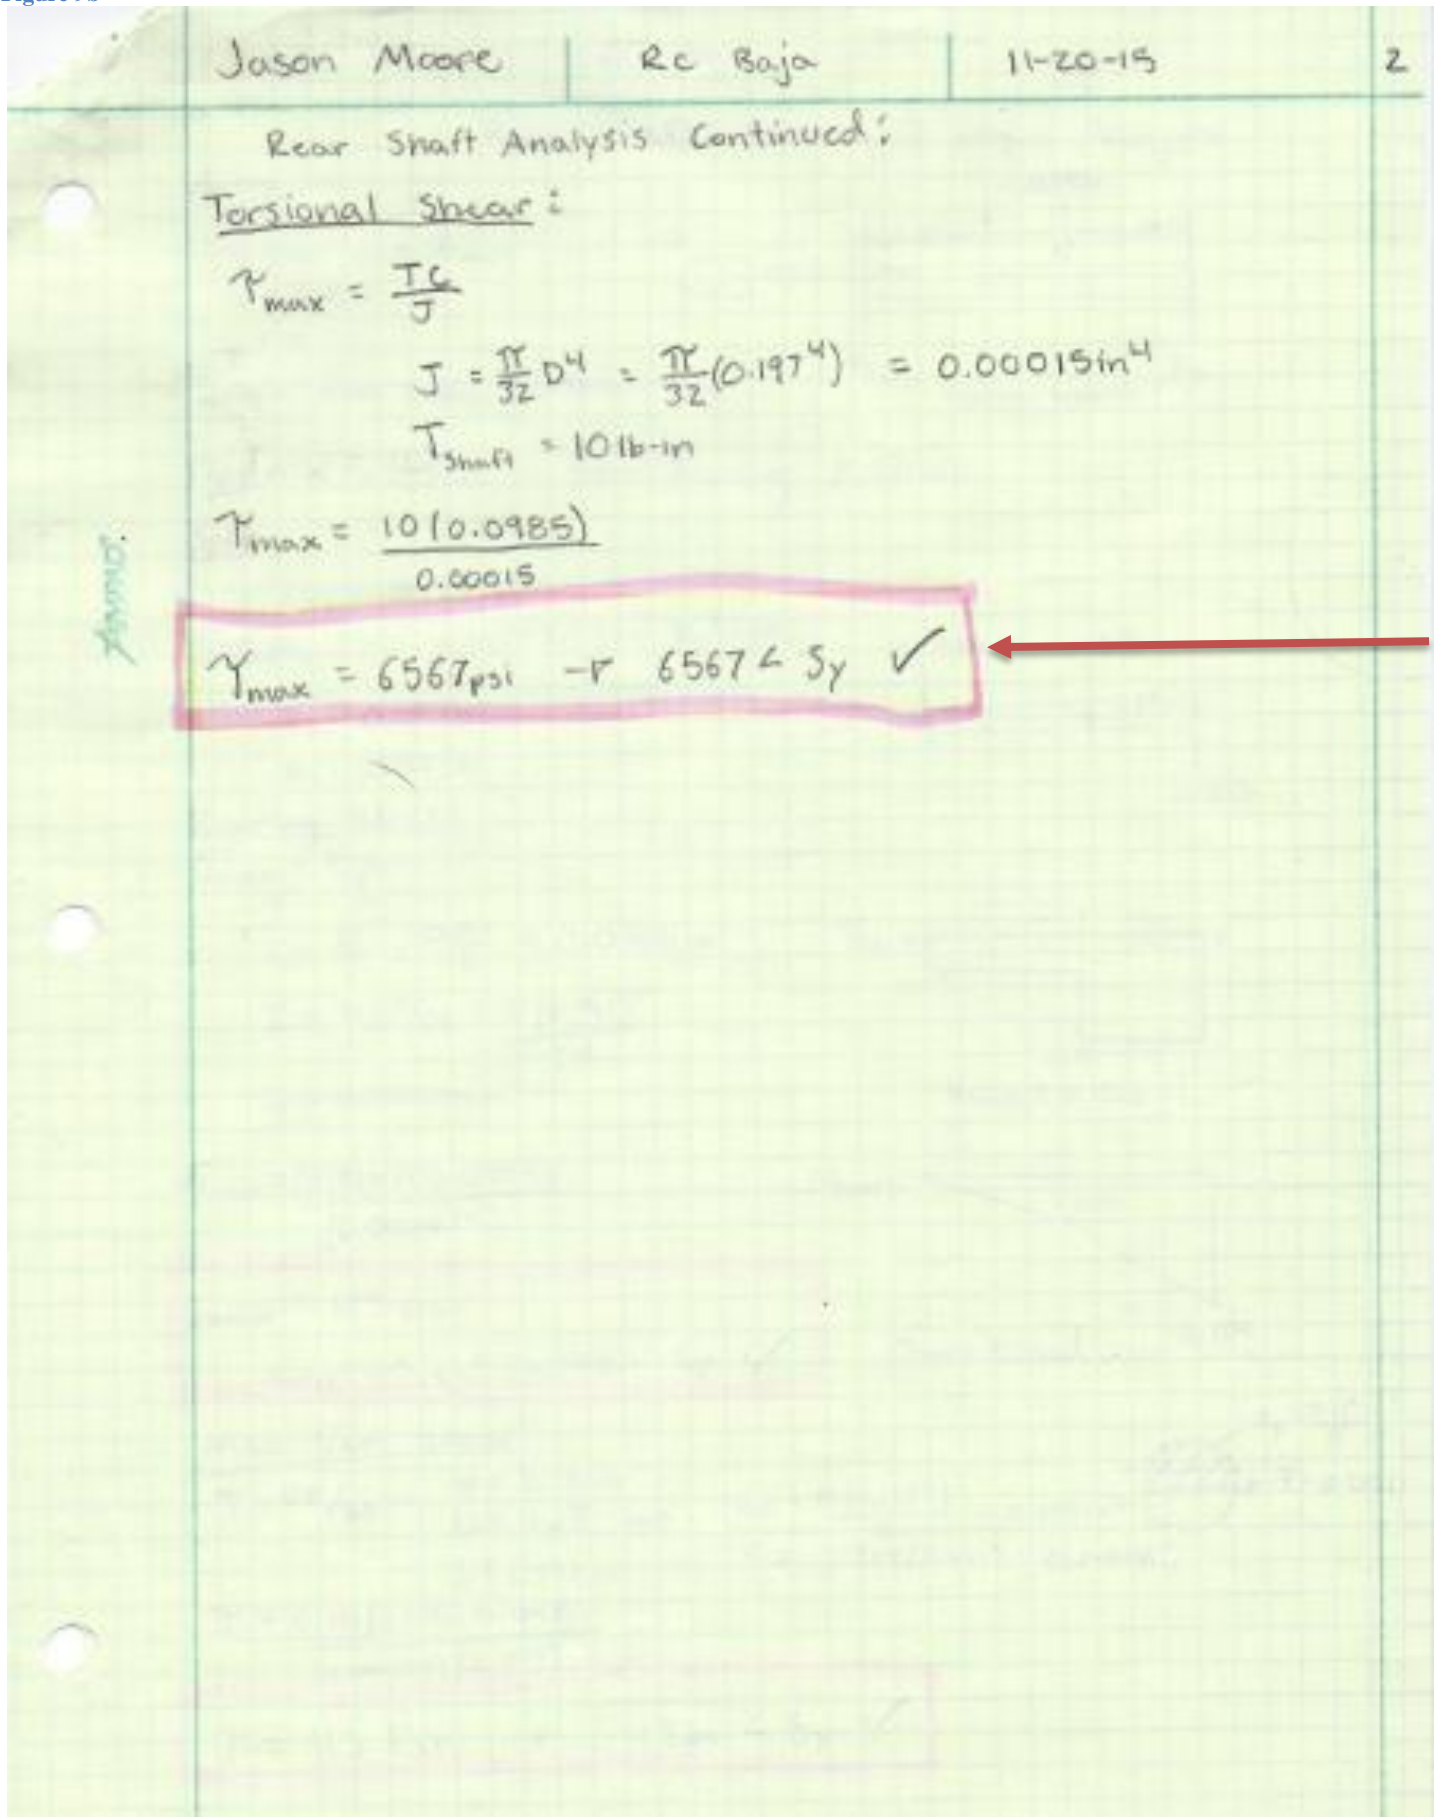 Jason Moore Rc Baja 11-20-15 2
Rear Shaft Analysis Continued:
Torsional Shear:
τmax = TC/J
J = π/32 D⁴ = π/32 (0.197⁴) = 0.00015in⁴
Tshaft = 10 lb-in
τmax = 10(0.0985)/0.00015
τmax = 6567psi → 6567 < Sy ✓